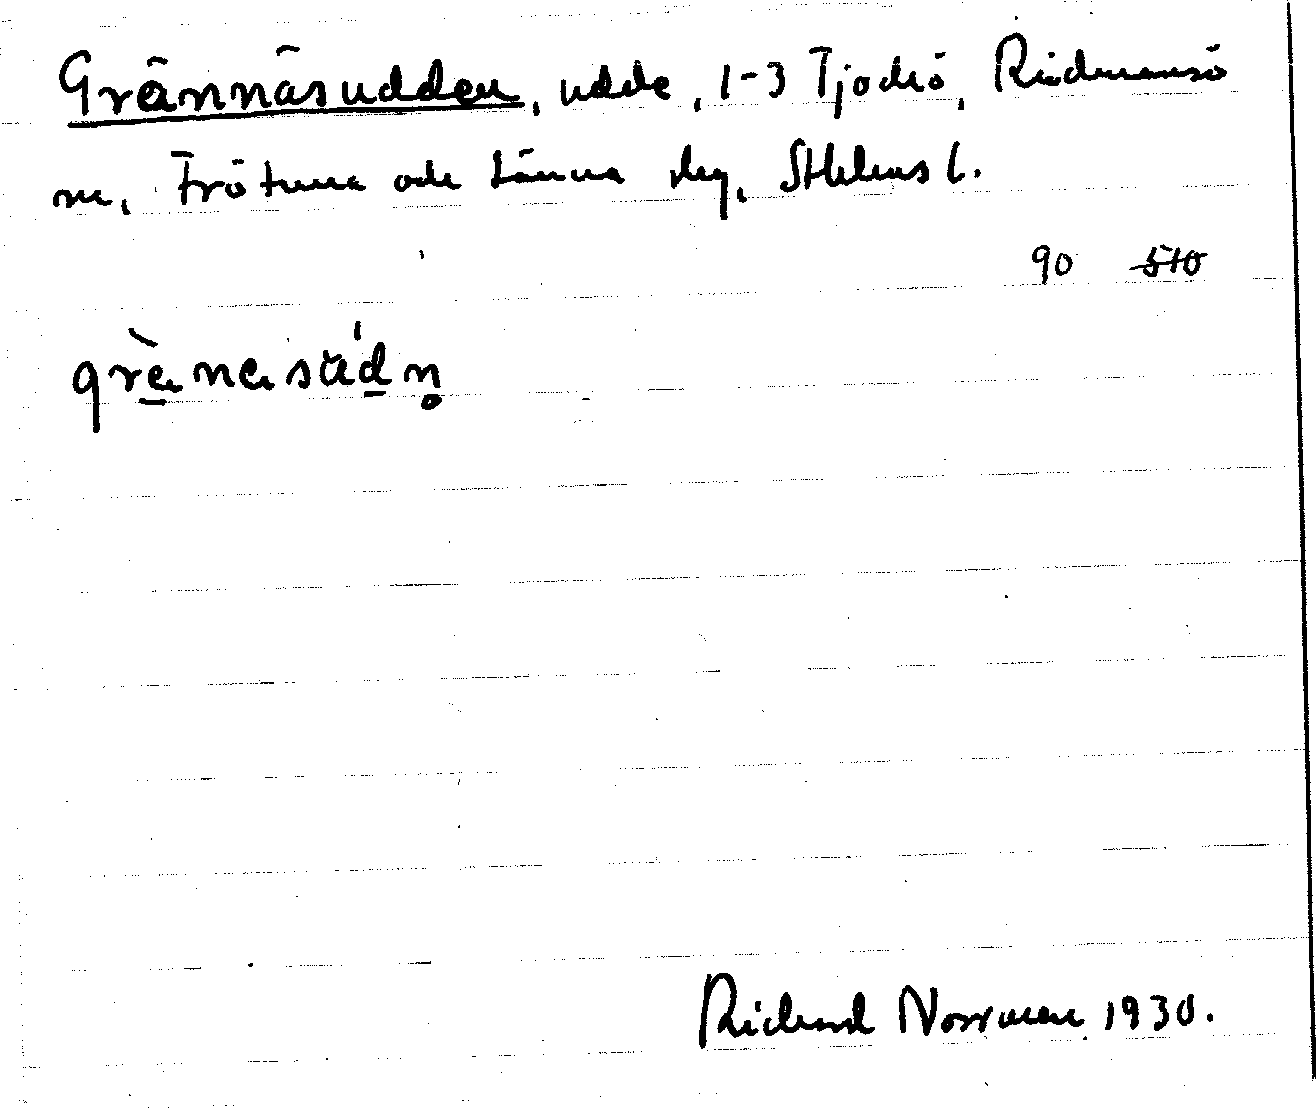 Grännäsudden, udde, 1-3 Tjockö, Rådmansö
sn, Frötuna och Länna skg, Sthlms l.
90 510
grènasúdn̥
Richard Norrman 1930.